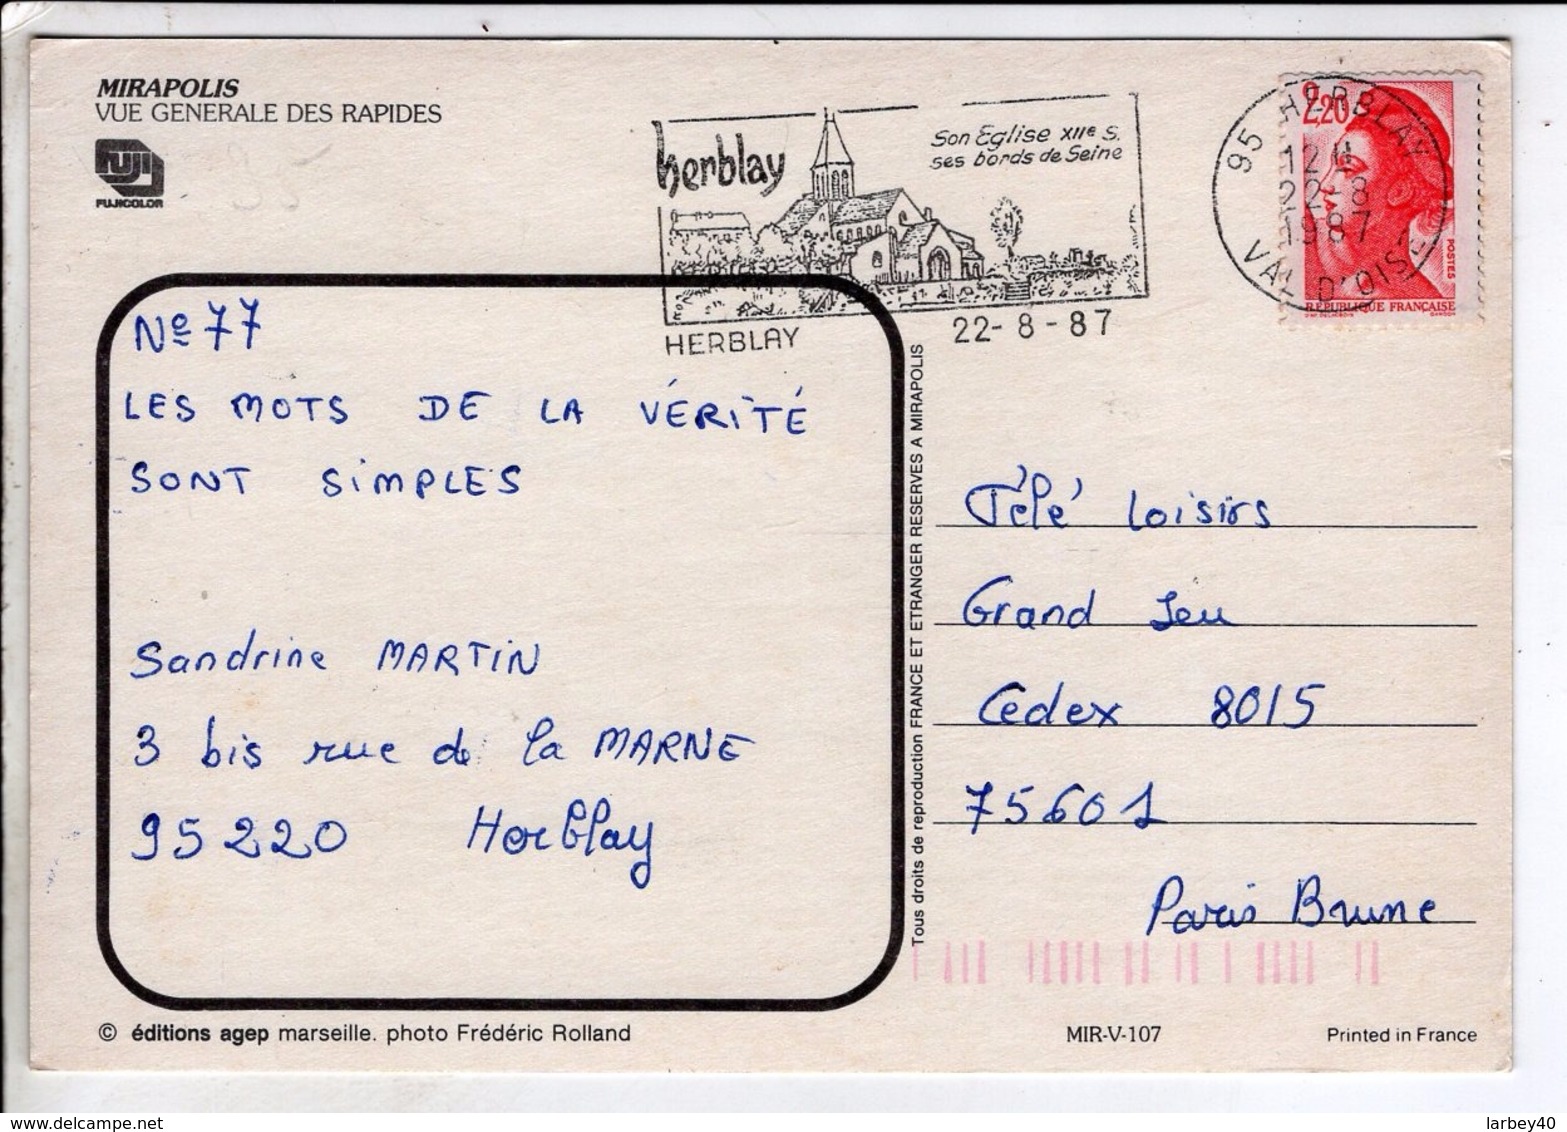 MIRAPOLIS
VUE GENERALE DES RAPIDES
FUJI
FUJICOLOR
herblay
Son Eglise XIIe S.
ses bords de Seine
HERBLAY
22-8-87
95 HERBLAY
12 H
22-8
1987
VAL D'OISE
2,20
POSTES
REPUBLIQUE FRANÇAISE
Nº 77
LES MOTS DE LA VÉRITÉ
SONT SIMPLES
Sandrine MARTIN
3 bis rue de la MARNE
95220 Herblay
Tous droits de reproduction FRANCE ET ETRANGER RESERVES A MIRAPOLIS
Télé Loisirs
Grand Jeu
Cedex 8015
75601
Paris Brune
© éditions agep marseille. photo Frédéric Rolland
MIR-V-107
Printed in France
www.delcampe.net
larbey40